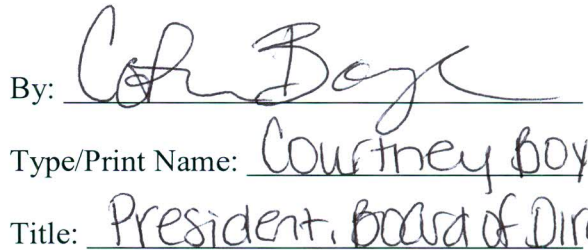 By:
Type/Print Name: Courtney Boy
Title: President, Board of Dir